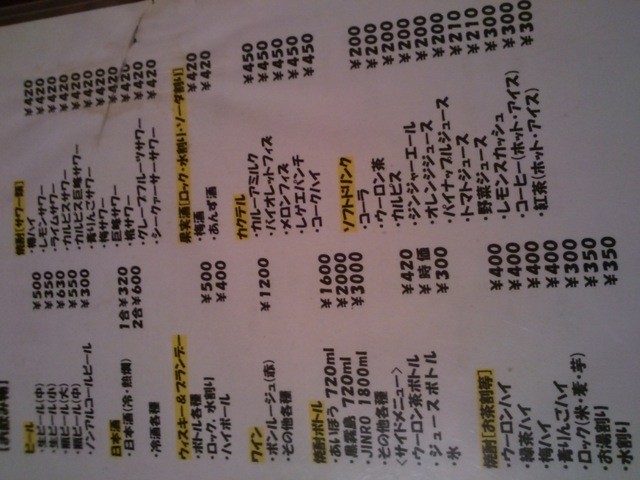 [お飲み物]
ビール
・生ビール(中) ¥500
・生ビール(小) ¥350
・瓶ビール(大) ¥630
・瓶ビール(中) ¥550
・ノンアルコールビール ¥300
日本酒
・日本酒(冷・熱燗) 1合¥320
2合¥600
・冷酒各種
ウィスキー&ブランデー
・ボトル各種
・ロック、水割り ¥500
・ハイボール ¥400
ワイン
・ボンルージュ(赤) ¥1200
・その他各種
焼酎ボトル
・あいぼう 720ml ¥1600
・黒霧島 720ml ¥2000
・JINRO 1800ml ¥3000
・その他各種
<サイドメニュー>
・ウーロン茶ボトル ¥420
・ジュースボトル ¥時価
・氷 ¥300
焼酎[お茶割等]
・ウーロンハイ ¥400
・緑茶ハイ ¥400
・梅ハイ ¥400
・青りんごハイ ¥400
・ロック(米・麦・芋) ¥300
・お湯割り ¥350
・水割り ¥350
焼酎[サワー類]
・梅ハイ ¥420
・レモンサワー ¥420
・ライムサワー ¥420
・カルピスサワー ¥420
・カルピス巨峰サワー ¥420
・青りんごサワー ¥420
・梅サワー ¥420
・巨峰サワー ¥420
・桃サワー ¥420
・グレープフルーツサワー
・シークァーサーサワー
果実酒[ロック・水割り・ソーダ割り]
・梅酒 ¥420
・あんず酒 ¥420
カクテル
・カルーアミルク ¥450
・バイオレットフィズ ¥450
・メロンフィズ ¥450
・レゲエパンチ ¥450
・コークハイ ¥450
ソフトドリンク
・コーラ ¥200
・ウーロン茶 ¥200
・カルピス ¥200
・ジンジャーエール ¥200
・オレンジジュース ¥200
・パイナップルジュース ¥200
・トマトジュース ¥210
・野菜ジュース ¥210
・レモンスカッシュ ¥300
・コーヒー(ホット・アイス) ¥300
・紅茶(ホット・アイス) ¥300